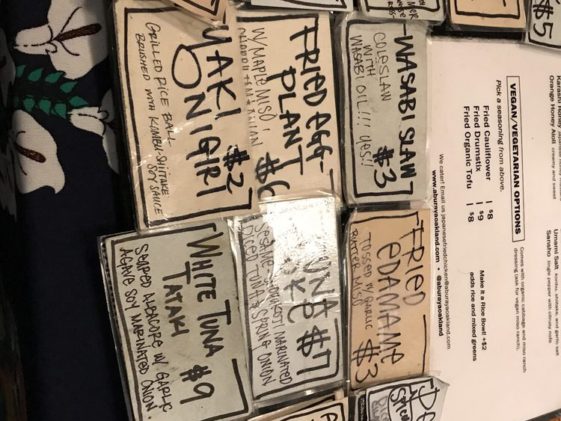 YAKI
ONIGIRI
$2
GRILLED RICE BALL
BRUSHED WITH KOMBU-SHIITAKE
SOY SAUCE
FRIED EGG
PLANT
W/ MAPLE MISO,
WASABI SLAW
COLESLAW
WITH
WASABI OIL!!! YES!!
$3
WHITE TUNA
TATAKI
$9
SEARED ALBACORE W/ GARLIC
AGAVE SOY MARINATED ONION.
TUNA
POKE
$7
MARINATED
DICED TUNA & SPRING ONION
FRIED
EDAMAME
TOSSED W/ GARLIC
BUTTER MISO
$3
$5
VEGAN/VEGETARIAN OPTIONS
Pick a seasoning from above.
Fried Cauliflower | $8
Fried Drumstix | $9
Fried Organic Tofu | $8
Comes with organic cabbage and miso ranch
dressing (ask for vegan miso ranch).
Make it a Rice Bowl! +$2
adds rice and mixed greens
We cater! Email us japanesefriedchicken@aburayaoakland.com
www.aburayaoakland.com • @aburayaoakland
Karashi Honey
Orange Honey Aioli creamy and sweet
Umami Salt
Sansho